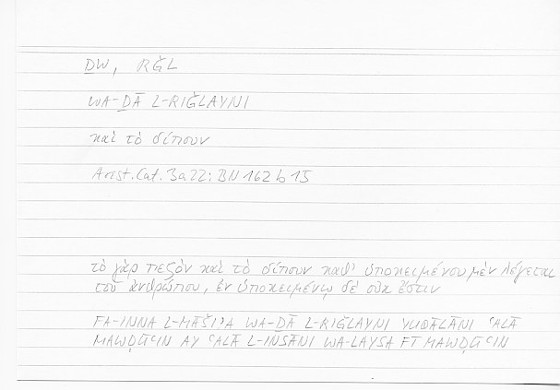 ḎW, RǦL
WA-ḎĀ L-RIǦLAYNI
καὶ τὸ δίπουν
Arist. Cat. 3a22; BN 162 b 15
τὸ γὰρ πεζὸν καὶ τὸ δίπουν καθ' ὑποκειμένου μὲν λέγεται
τοῦ ἀνθρώπου, ἐν ὑποκειμένῳ δὲ οὐκ ἔστιν
FA-INNA L-MĀŠIYA WA-ḎĀ L-RIǦLAYNI YUQĀLĀNI ʿALĀ
MAWḌŪʿIN AY ʿALĀ L-INSĀNI WA-LAYSA FĪ MAWḌŪʿIN